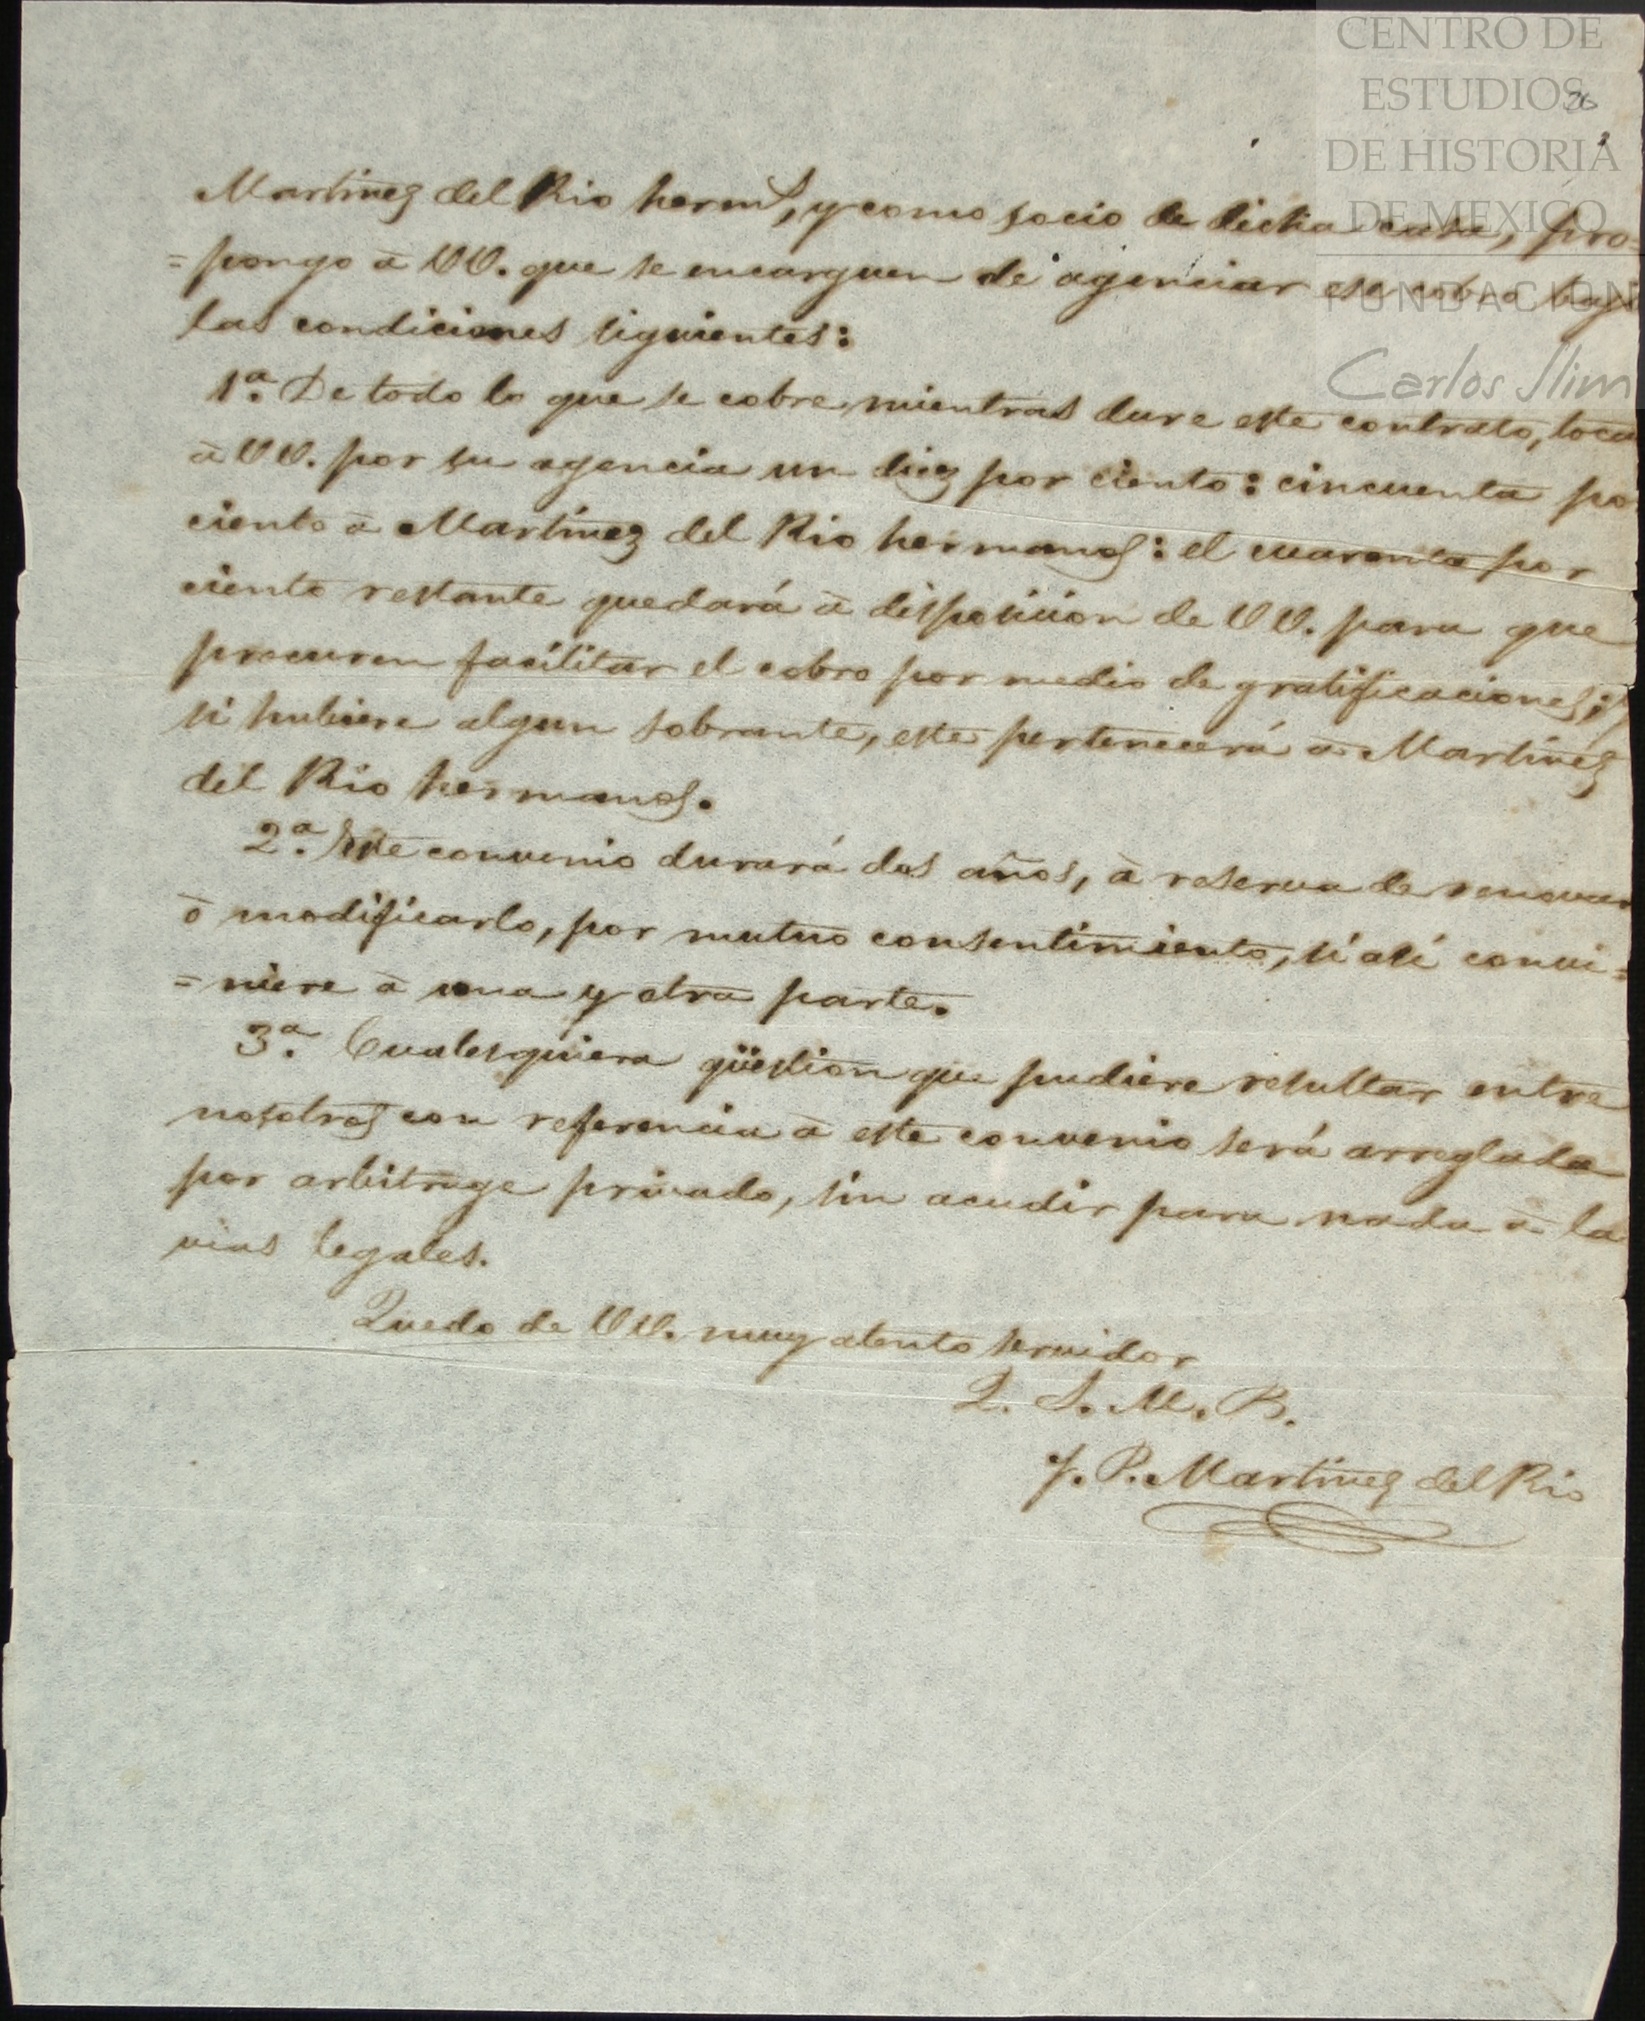 CENTRO DE
ESTUDIOS
DE HISTORIA
DE MEXICO
FUNDACION
Carlos Slim
Martinez del Rio herms, y como socio de dicha casa, pro=
=pongo à VV. que se encarguen de agenciar ese cobro bajo
las condiciones siguientes:
1ª. De todo lo que se cobre mientras dure este contrato, toca
à VV. por su agencia un diez por ciento: cincuenta po
ciento à Martinez del Rio hermanos: el cuarenta por
ciento restante quedará à disposicion de VV. para que
procuren facilitar el cobro por medio de gratificaciones; y
si hubiere algun sobrante, este pertenecerá à Martinez
del Rio hermanos.
2ª. Este convenio durará dos años, à reserva de renovar
ò modificarlo, por mutuo consentimiento, si asi convi=
=niere à una y otra parte.
3ª. Cualesquiera qüestion que pudiere resultar entre
nosotros con referencia à este convenio será arreglada
por arbitrage privado, sin acudir para nada à la
vias legales.
Quedo de VV. muy atento servidor
Q. S. M. B.
J. P. Martinez del Rio